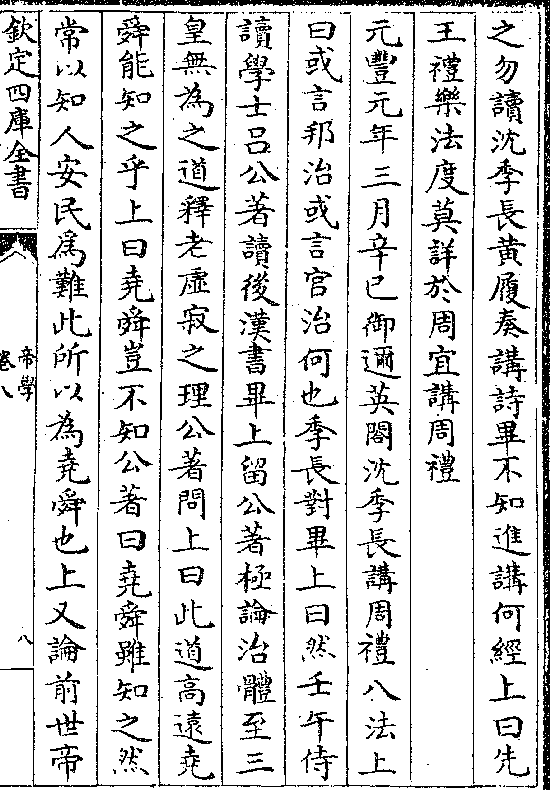 之勿讀沈季長黄履奏講詩畢不知進講何經上曰先
王禮樂法度莫詳於周宜講周禮
元豐元年三月辛巳御邇英閣沈季長講周禮八法上
曰或言邦治或言官治何也季長對畢上曰然壬午侍
讀學士吕公著讀後漢書畢上留公著極論治體至三
皇無為之道釋老虛寂之理公著問上曰此道高遠堯
舜能知之乎上曰堯舜豈不知公著曰堯舜雖知之然
常以知人安民爲難此所以為堯舜也上又論前世帝
欽定四庫全書
帝學
卷八
八